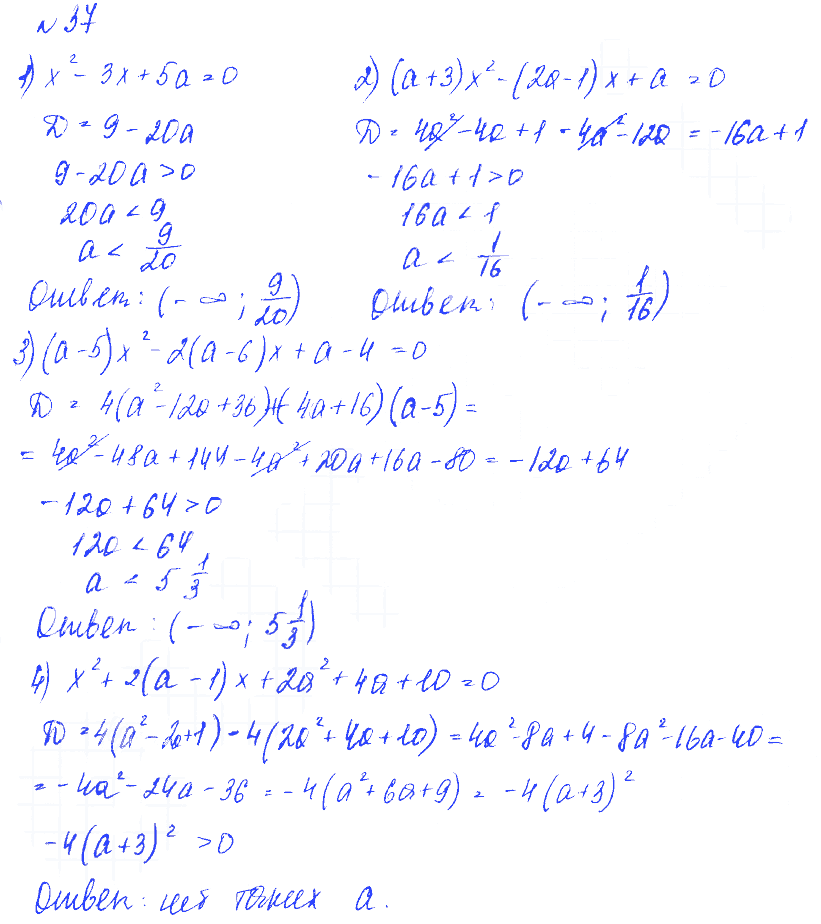 № 37
1) x² - 3x + 5a = 0
Д = 9 - 20a
9 - 20a > 0
20a < 9
a < 9/20
Ответ: (- ∞; 9/20)
2) (a+3)x² - (2a-1)x + a = 0
Д = 4a² - 4a + 1 - 4a² - 12a = -16a + 1
-16a + 1 > 0
16a < 1
a < 1/16
Ответ: (- ∞; 1/16)
3) (a-5)x² - 2(a-6)x + a - 4 = 0
Д = 4(a² - 12a + 36) + (-4a + 16)(a-5) =
= 4a² - 48a + 144 - 4a² + 20a + 16a - 80 = -12a + 64
-12a + 64 > 0
12a < 64
a < 5 1/3
Ответ: (- ∞; 5 1/3)
4) x² + 2(a-1)x + 2a² + 4a + 10 = 0
Д = 4(a² - 2a + 1) - 4(2a² + 4a + 10) = 4a² - 8a + 4 - 8a² - 16a - 40 =
= -4a² - 24a - 36 = -4(a² + 6a + 9) = -4(a+3)²
-4(a+3)² > 0
Ответ: нет таких a.